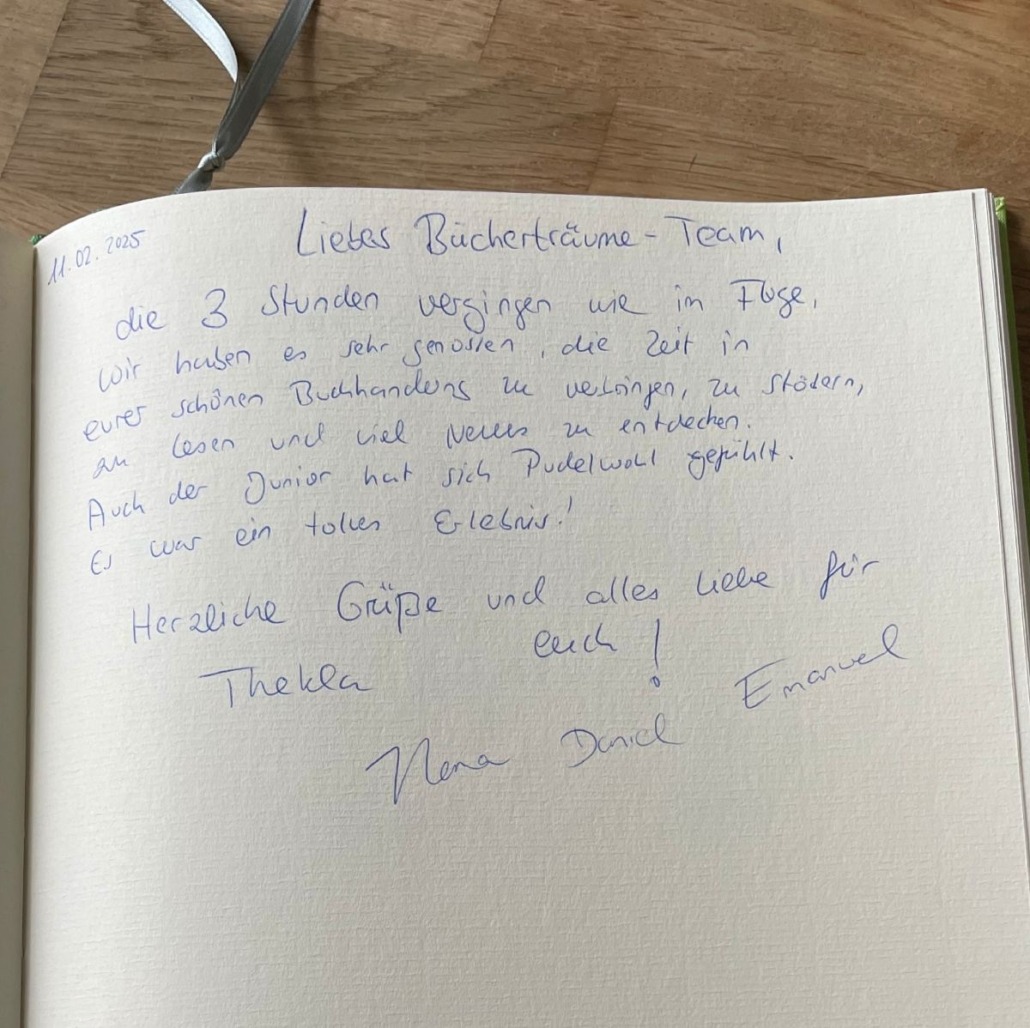 11.02.2025
Liebes Bücherträume-Team,
die 3 Stunden vergingen wie im Fluge,
wir haben es sehr genossen, die Zeit in
eurer schönen Buchhandlung zu verbringen, zu stöbern,
zu lesen und viel Neues zu entdecken.
Auch der Junior hat sich Pudelwohl gefühlt.
Es war ein tolles Erlebnis!
Herzliche Grüße und alles Liebe für
euch!
Thekla
Emanuel
Daniel